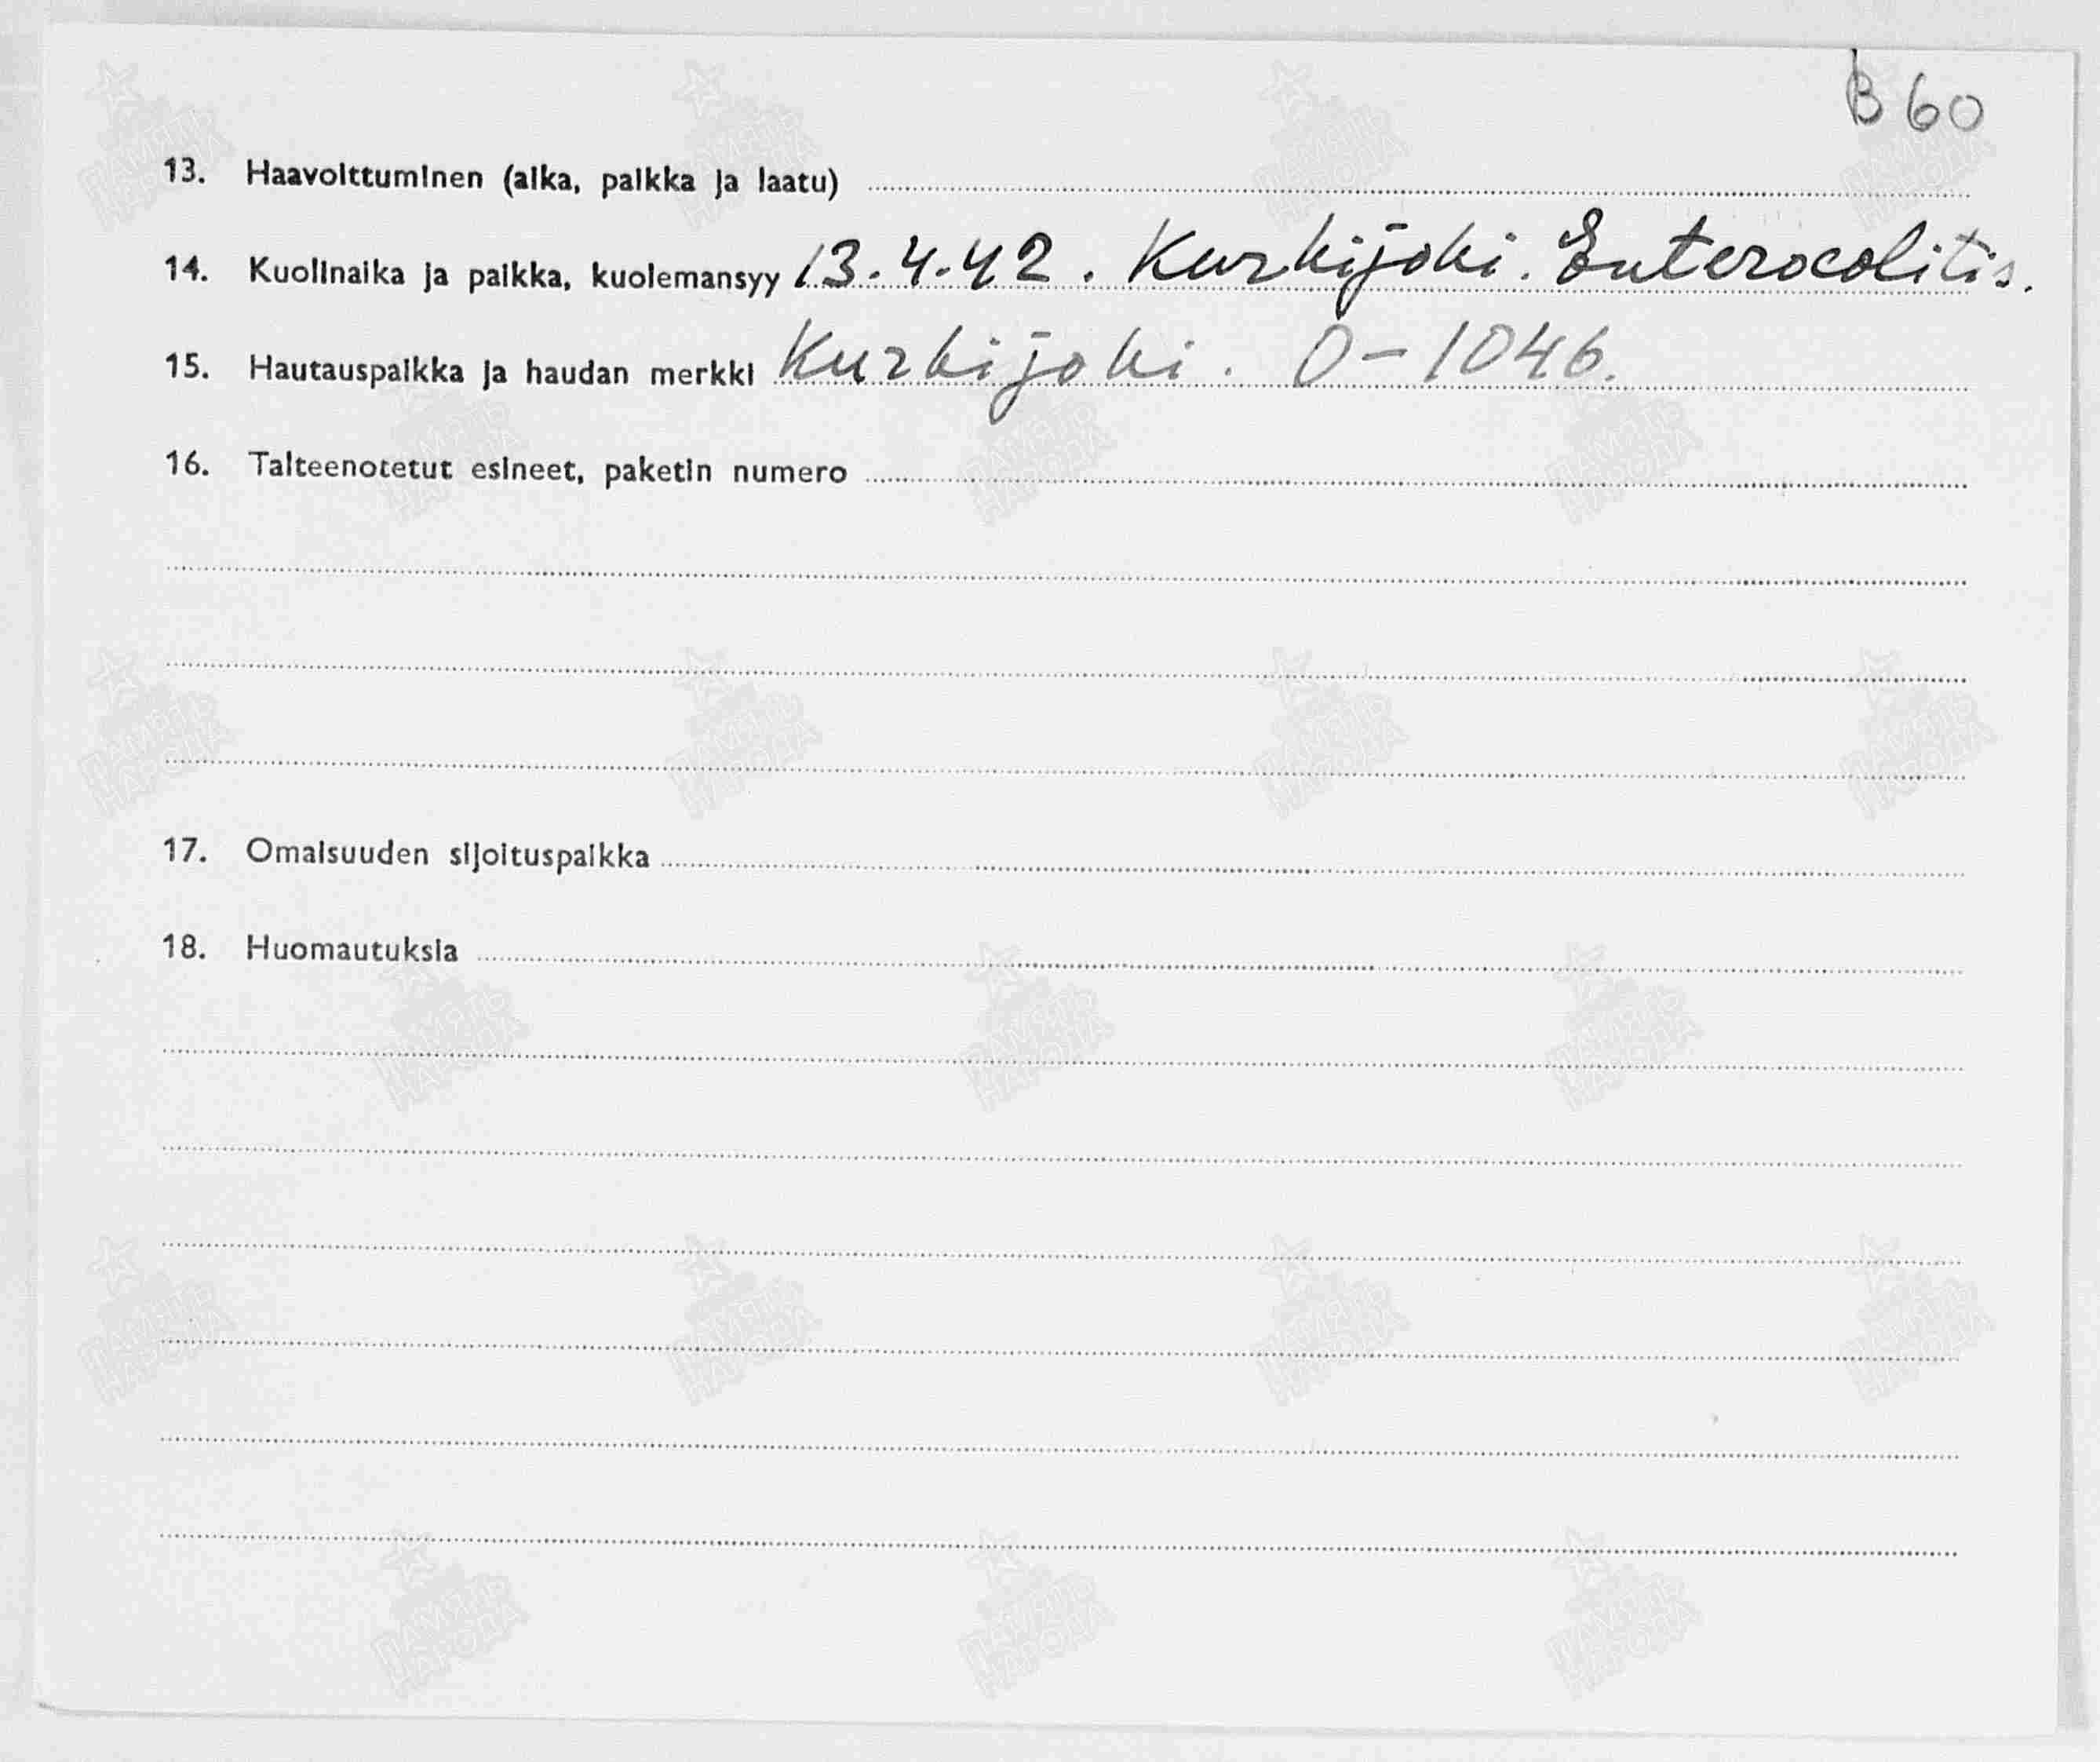 B 60
13. Haavoittuminen (aika, paikka ja laatu)
14. Kuolinaika ja paikka, kuolemansyy 13.4.42. Kurkijoki. Enterocolitis.
15. Hautauspaikka ja haudan merkki Kurkijoki. O-1046.
16. Talteenotetut esineet, paketin numero
17. Omaisuuden sijoituspaikka
18. Huomautuksia
ПАМЯТЬ НАРОДА